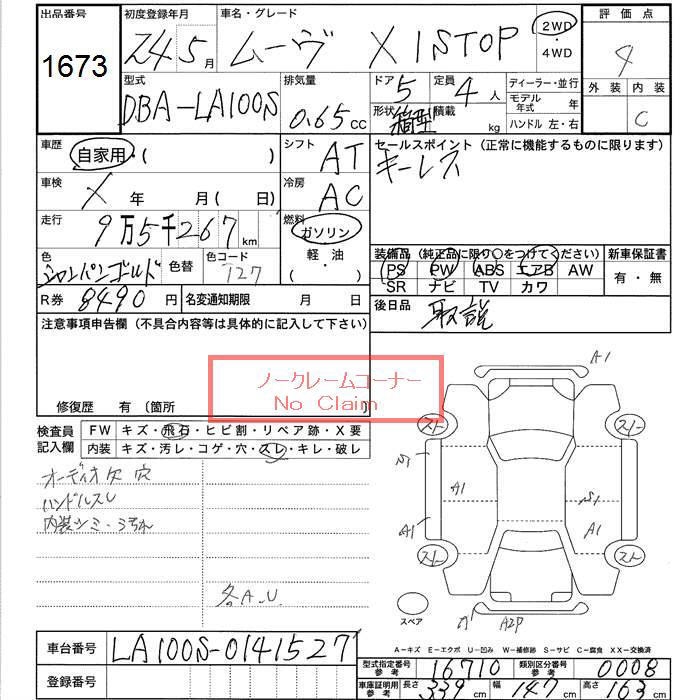 出品番号 初度登録年月 車名・グレード 評価点
1673 24 5月 ムーヴ X ISTOP 2WD 4WD 4
型式 排気量 ドア 定員 ディーラー・並行 外装 内装
DBA-LA100S 0.65cc 5 4人 モデル年式 年 C
形状 箱型 積載 kg ハンドル 左・右
車歴 シフト セールスポイント(正常に機能するものに限ります)
自家用・( ) AT キーレス
車検 冷房
X 年 月(日) AC
走行 燃料
9万5千267km ガソリン
色 色替 色コード 軽・油 装備品(純正品に限り○をつけてください) 新車保証書
シャンパンゴールド T27 ( ・ ) PS PW ABS エアB AW 有・無
SR ナビ TV カワ
R券 8490円 名変通知期限 月 日 後日品 取説
注意事項申告欄(不具合内容等は具体的に記入して下さい)
ノークレームコーナー
No Claim
修復歴 有 (箇所 )
検査員記入欄 FW キズ・飛石・ヒビ割・リペア跡・X要
内装 キズ・汚レ・コゲ・穴・スレ・キレ・破レ
オーディオ欠 穴
ハンドルスレ
内装シミ・汚れ
各A.U
A1
スト スト
S1 A1 S1
A1 A1
スト スト
スペア A2P
A-キズ E-エクボ U-凹み W-補修跡 S-サビ C-腐食 XX-交換済
車台番号 LA100S-0141527
登録番号
型式指定番号参考 16710 類別区分番号参考 0008
車庫証明用参考 長さ 339cm 幅 147cm 高さ 163cm